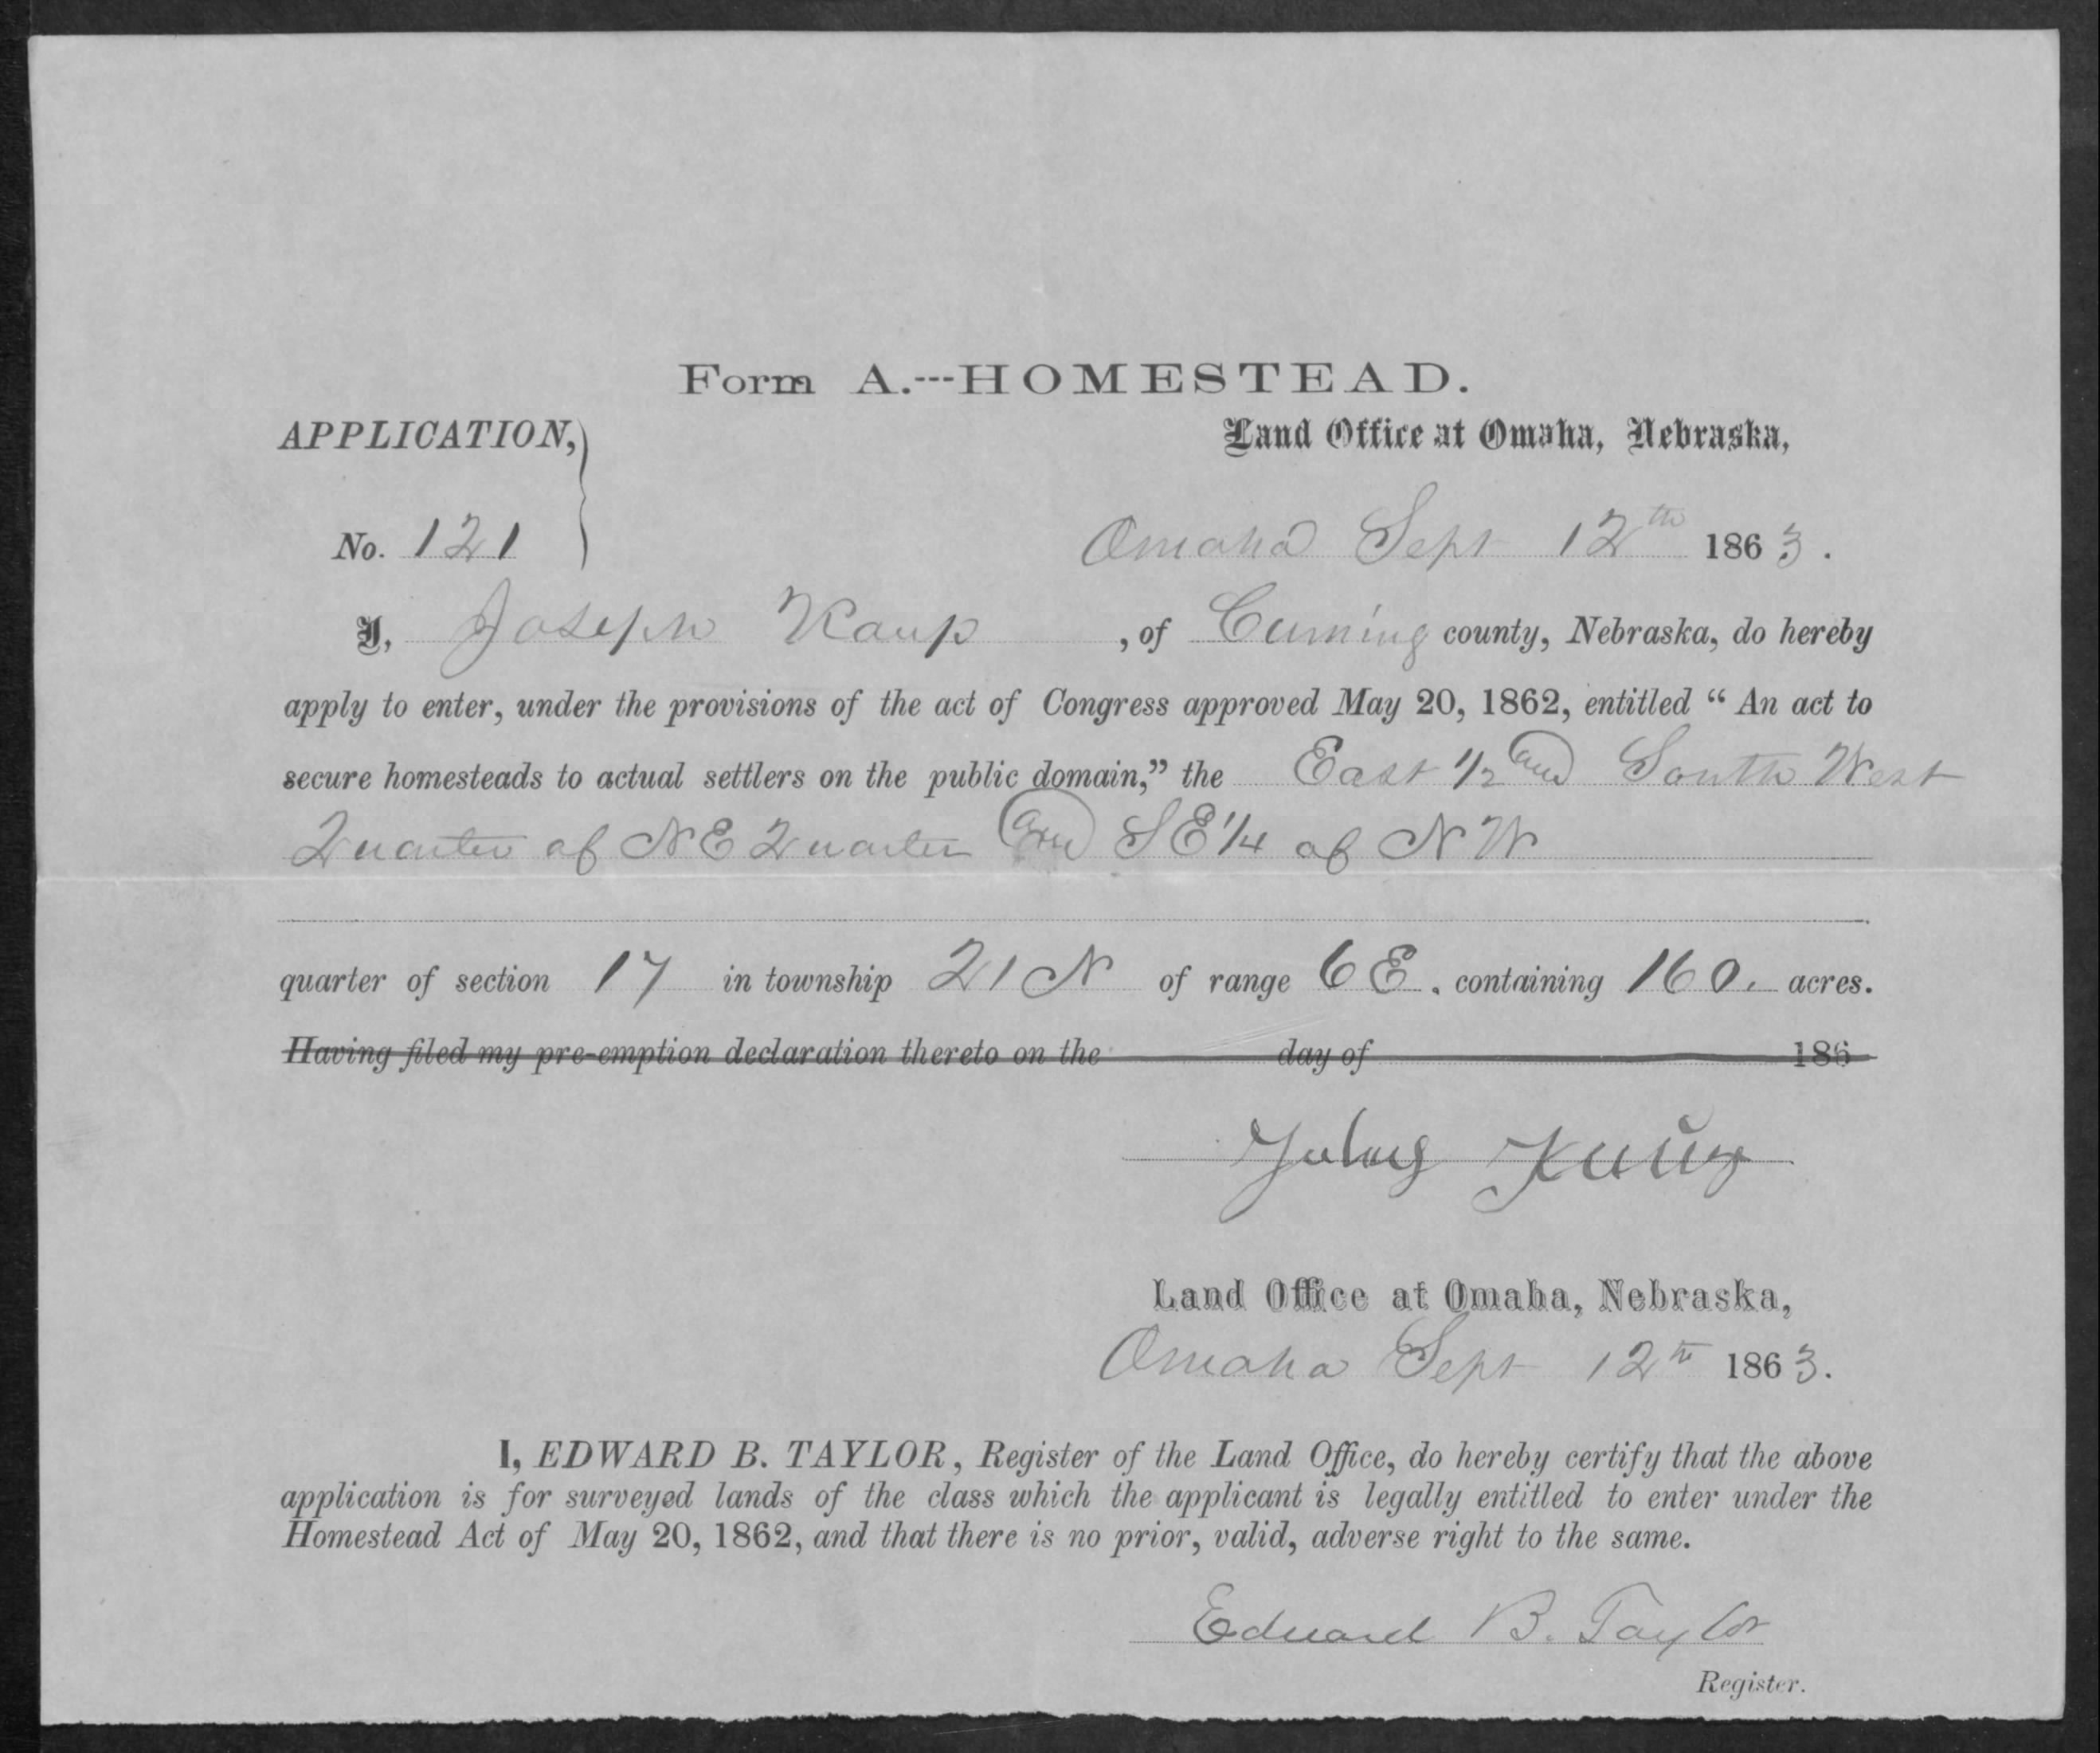 Form A.---HOMESTEAD.
APPLICATION,
Land Office at Omaha, Nebraska,
No. 121
Omaha Sept 12th 1863.
I, Joseph Kaup, of Cuming county, Nebraska, do hereby
apply to enter, under the provisions of the act of Congress approved May 20, 1862, entitled “ An act to
secure homesteads to actual settlers on the public domain,” the East 1/2 and South West
Quarter of NE Quarter and SE 1/4 of NW
quarter of section 17 in township 21 N of range 6 E. containing 160. acres.
Having filed my pre-emption declaration thereto on the day of 186
Land Office at Omaha, Nebraska,
Omaha Sept 12th 1863.
I, EDWARD B. TAYLOR, Register of the Land Office, do hereby certify that the above
application is for surveyed lands of the class which the applicant is legally entitled to enter under the
Homestead Act of May 20, 1862, and that there is no prior, valid, adverse right to the same.
Edward B. Taylor
Register.